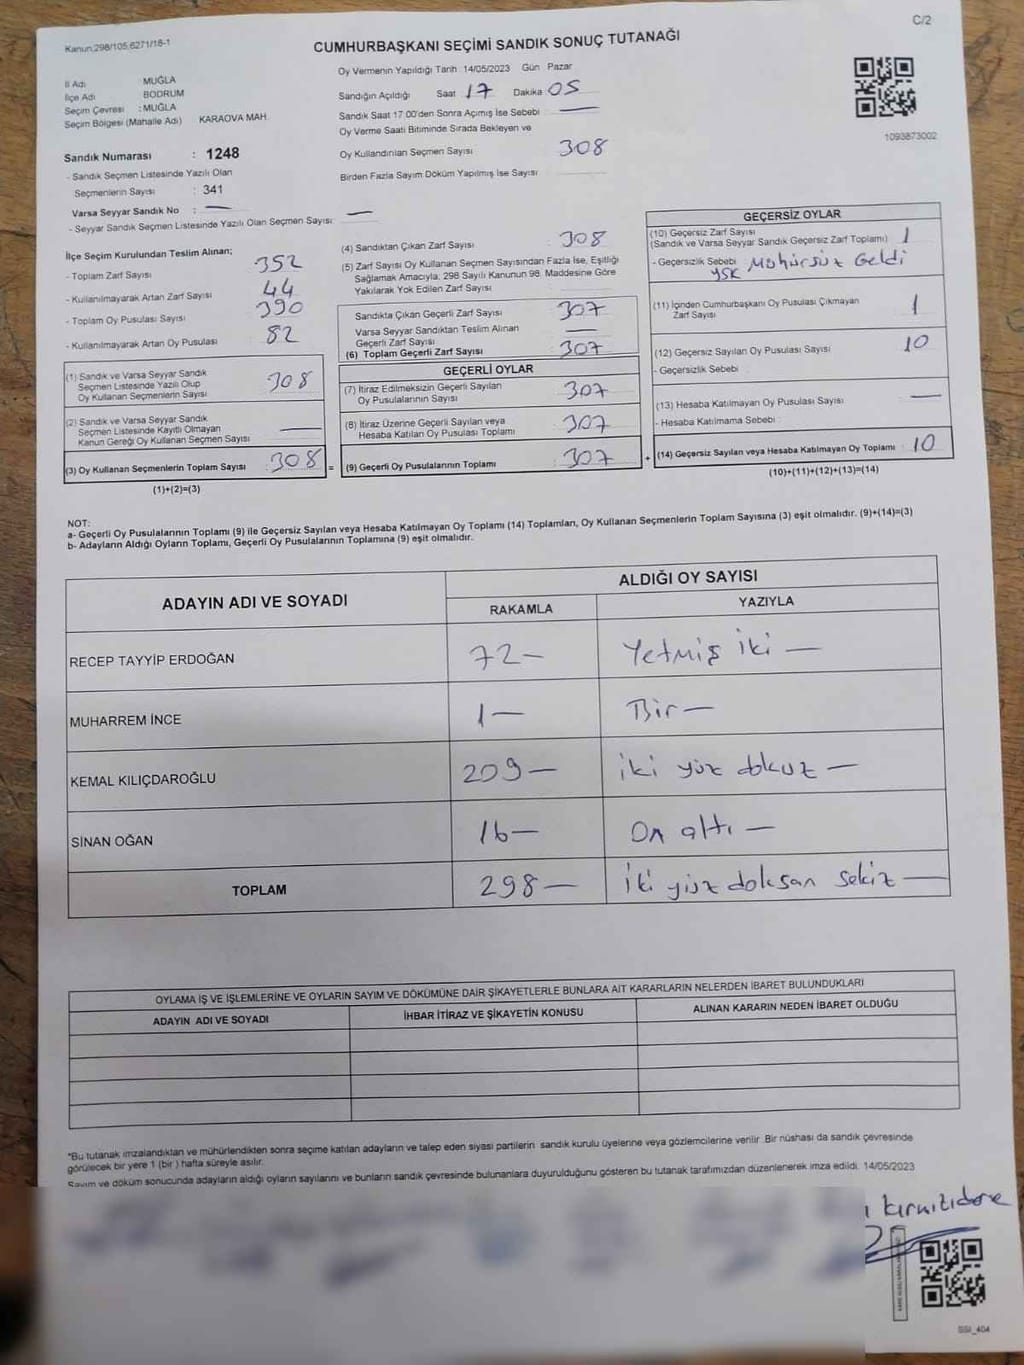 C/2
Kanun:298/105,6271/18-1
CUMHURBAŞKANI SEÇİMİ SANDIK SONUÇ TUTANAĞI
İl Adı MUĞLA
İlçe Adı BODRUM
Seçim Çevresi : MUĞLA
Seçim Bölgesi (Mahalle Adı) KARAOVA MAH.
Oy Vermenin Yapıldığı Tarih 14/05/2023 Gün Pazar
Sandığın Açıldığı Saat 17 Dakika 05
Sandık Saat 17:00'den Sonra Açımış İse Sebebi —
Oy Verme Saati Bitiminde Sırada Bekleyen ve
Oy Kullandırılan Seçmen Sayısı 308
Birden Fazla Sayım Döküm Yapılmış İse Sayısı
1093873002
Sandık Numarası : 1248
- Sandık Seçmen Listesinde Yazılı Olan
Seçmenlerin Sayısı : 341
Varsa Seyyar Sandık No : —
- Seyyar Sandık Seçmen Listesinde Yazılı Olan Seçmen Sayısı: —
İlçe Seçim Kurulundan Teslim Alınan;
- Toplam Zarf Sayısı 352
- Kullanılmayarak Artan Zarf Sayısı 44
- Toplam Oy Pusulası Sayısı 390
- Kullanılmayarak Artan Oy Pusulası 82
(1) Sandık ve Varsa Seyyar Sandık
Seçmen Listesinde Yazılı Olup
Oy Kullanan Seçmenlerin Sayısı 308
(2) Sandık ve Varsa Seyyar Sandık
Seçmen Listesinde Kayıtlı Olmayan
Kanun Gereği Oy Kullanan Seçmen Sayısı —
(3) Oy Kullanan Seçmenlerin Toplam Sayısı : 308 =
(1)+(2)=(3)
(4) Sandıktan Çıkan Zarf Sayısı 308
(5) Zarf Sayısı Oy Kullanan Seçmen Sayısından Fazla İse, Eşitliği
Sağlamak Amacıyla, 298 Sayılı Kanunun 98. Maddesine Göre
Yakılarak Yok Edilen Zarf Sayısı
Sandıkta Çıkan Geçerli Zarf Sayısı 307
Varsa Seyyar Sandıktan Teslim Alınan
Geçerli Zarf Sayısı —
(6) Toplam Geçerli Zarf Sayısı 307
GEÇERLİ OYLAR
(7) İtiraz Edilmeksizin Geçerli Sayılan
Oy Pusulalarının Sayısı 307
(8) İtiraz Üzerine Geçerli Sayılan veya
Hesaba Katılan Oy Pusulası Toplamı 307
(9) Geçerli Oy Pusulalarının Toplamı 307 +
GEÇERSİZ OYLAR
(10) Geçersiz Zarf Sayısı
(Sandık ve Varsa Seyyar Sandık Geçersiz Zarf Toplamı) 1
- Geçersizlik Sebebi YSK Mühürsüz Geldi
(11) İçinden Cumhurbaşkanı Oy Pusulası Çıkmayan
Zarf Sayısı 1
(12) Geçersiz Sayılan Oy Pusulası Sayısı 10
- Geçersizlik Sebebi
(13) Hesaba Katılmayan Oy Pusulası Sayısı —
- Hesaba Katılmama Sebebi
(14) Geçersiz Sayılan veya Hesaba Katılmayan Oy Toplamı : 10
(10)+(11)+(12)+(13)=(14)
NOT:
a- Geçerli Oy Pusulalarının Toplamı (9) ile Geçersiz Sayılan veya Hesaba Katılmayan Oy Toplamı (14) Toplamları, Oy Kullanan Seçmenlerin Toplam Sayısına (3) eşit olmalıdır. (9)+(14)=(3)
b- Adayların Aldığı Oyların Toplamı, Geçerli Oy Pusulalarının Toplamına (9) eşit olmalıdır.
ADAYIN ADI VE SOYADI
ALDIĞI OY SAYISI
RAKAMLA YAZIYLA
RECEP TAYYİP ERDOĞAN 72— Yetmiş iki —
MUHARREM İNCE 1— Bir —
KEMAL KILIÇDAROĞLU 209— iki yüz dokuz —
SİNAN OĞAN 16— On altı —
TOPLAM 298— iki yüz doksan sekiz —
OYLAMA İŞ VE İŞLEMLERİNE VE OYLARIN SAYIM VE DÖKÜMÜNE DAİR ŞİKAYETLERLE BUNLARA AİT KARARLARIN NELERDEN İBARET BULUNDUKLARI
ADAYIN ADI VE SOYADI İHBAR İTİRAZ VE ŞİKAYETİN KONUSU ALINAN KARARIN NEDEN İBARET OLDUĞU
*Bu tutanak imzalandıktan ve mühürlendikten sonra seçime katılan adayların ve talep eden siyasi partilerin sandık kurulu üyelerine veya gözlemcilerine verilir. Bir nüshası da sandık çevresinde
görülecek bir yere 1 (bir) hafta süreyle asılır.
Sayım ve döküm sonucunda adayların aldığı oyların sayılarını ve bunların sandık çevresinde bulunanlara duyurulduğunu gösteren bu tutanak tarafımızdan düzenlenerek imza edildi. 14/05/2023
Kırmızıdere
SSI_404